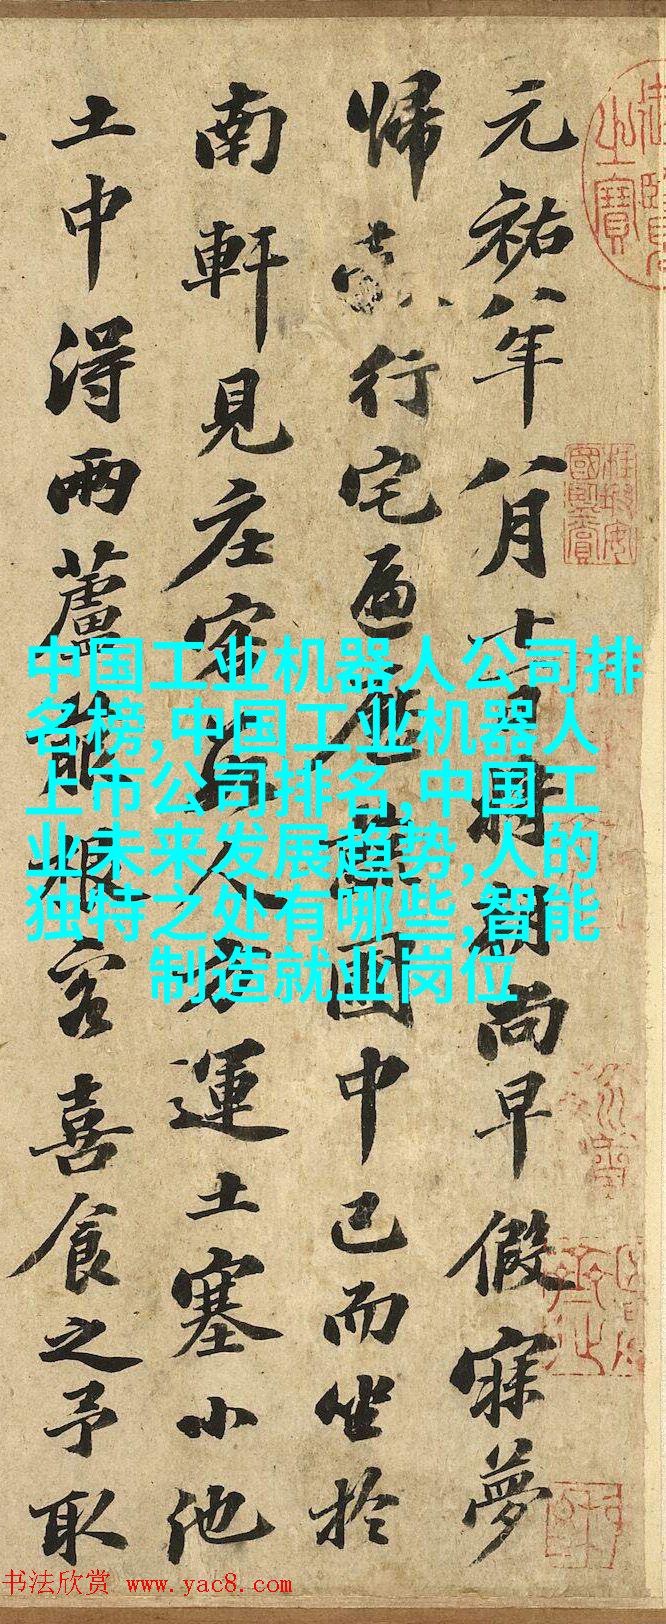 元祐八年八月十一日將朝尚早假寐夢
歸行宅遍歷蔬園中已而坐於
南軒見庄客數人方運土塞小池
土中得兩蘆菔根客喜食之予取
中国工业机器人公司排
名榜,中国工业机器人
上市公司排名,中国工
业未来发展趋势,人的
独特之处有哪些,智能
制造就业岗位
书法欣赏 www.yac8.com